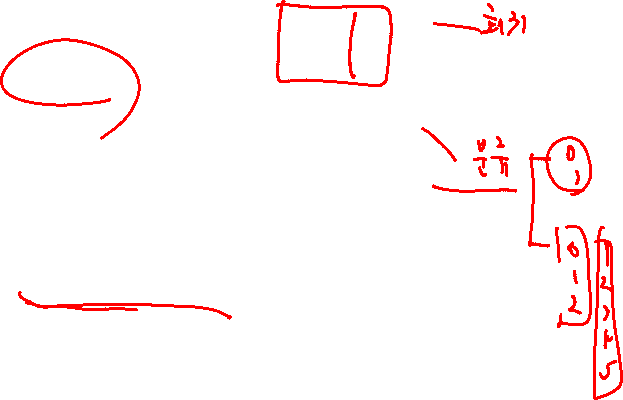 회귀
분류
0
1
0
1
2
1
2
3
4
5